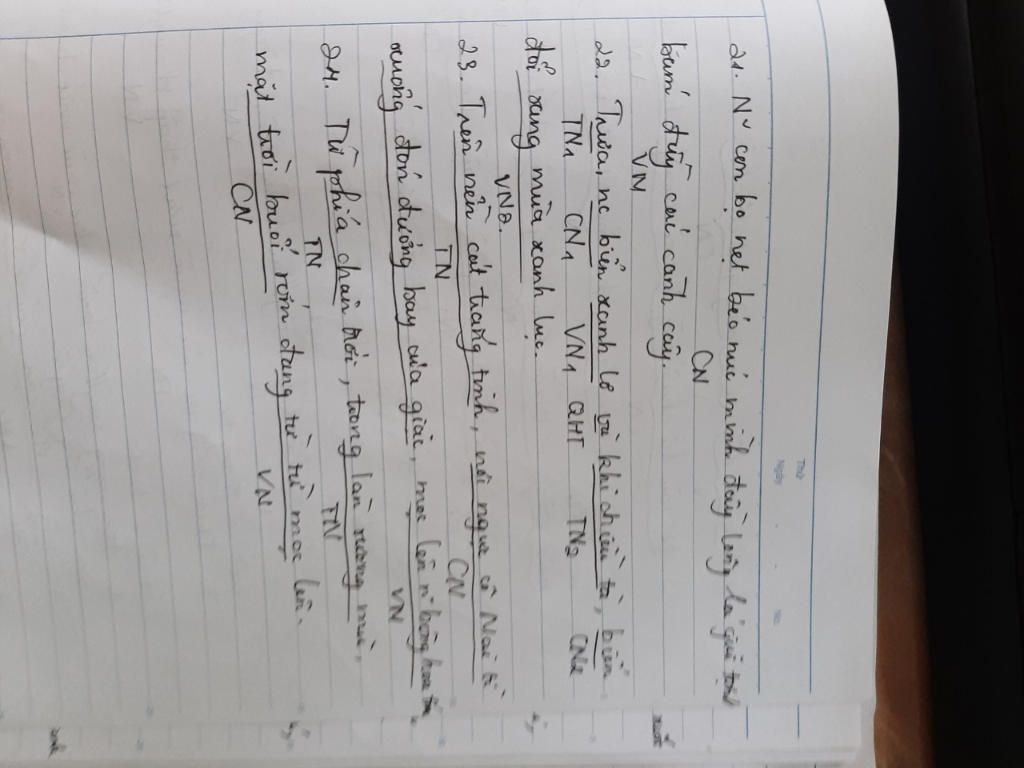 Thứ
Ngày
No.
21. N~ con bọ nẹt béo núc mình đầy lông lá
CN
bám đầy các cành cây.
VN
22. Trưa, nc biển xanh lơ và khi chiều tà, biển
TN1 CN1 VN1 QHT TN2 CN2
đổi sang màu xanh lục.
VN2.
23. Trên nền cát trắng tinh, nơi ngực cô Mai tì
TN CN
xuống đón đường bay của giặc, mọc lên n~ bông hoa tím
VN
24. Từ phía chân trời, trong làn sương mù,
TN TN
mặt trời buổi sớm đang từ từ mọc lên.
CN VN